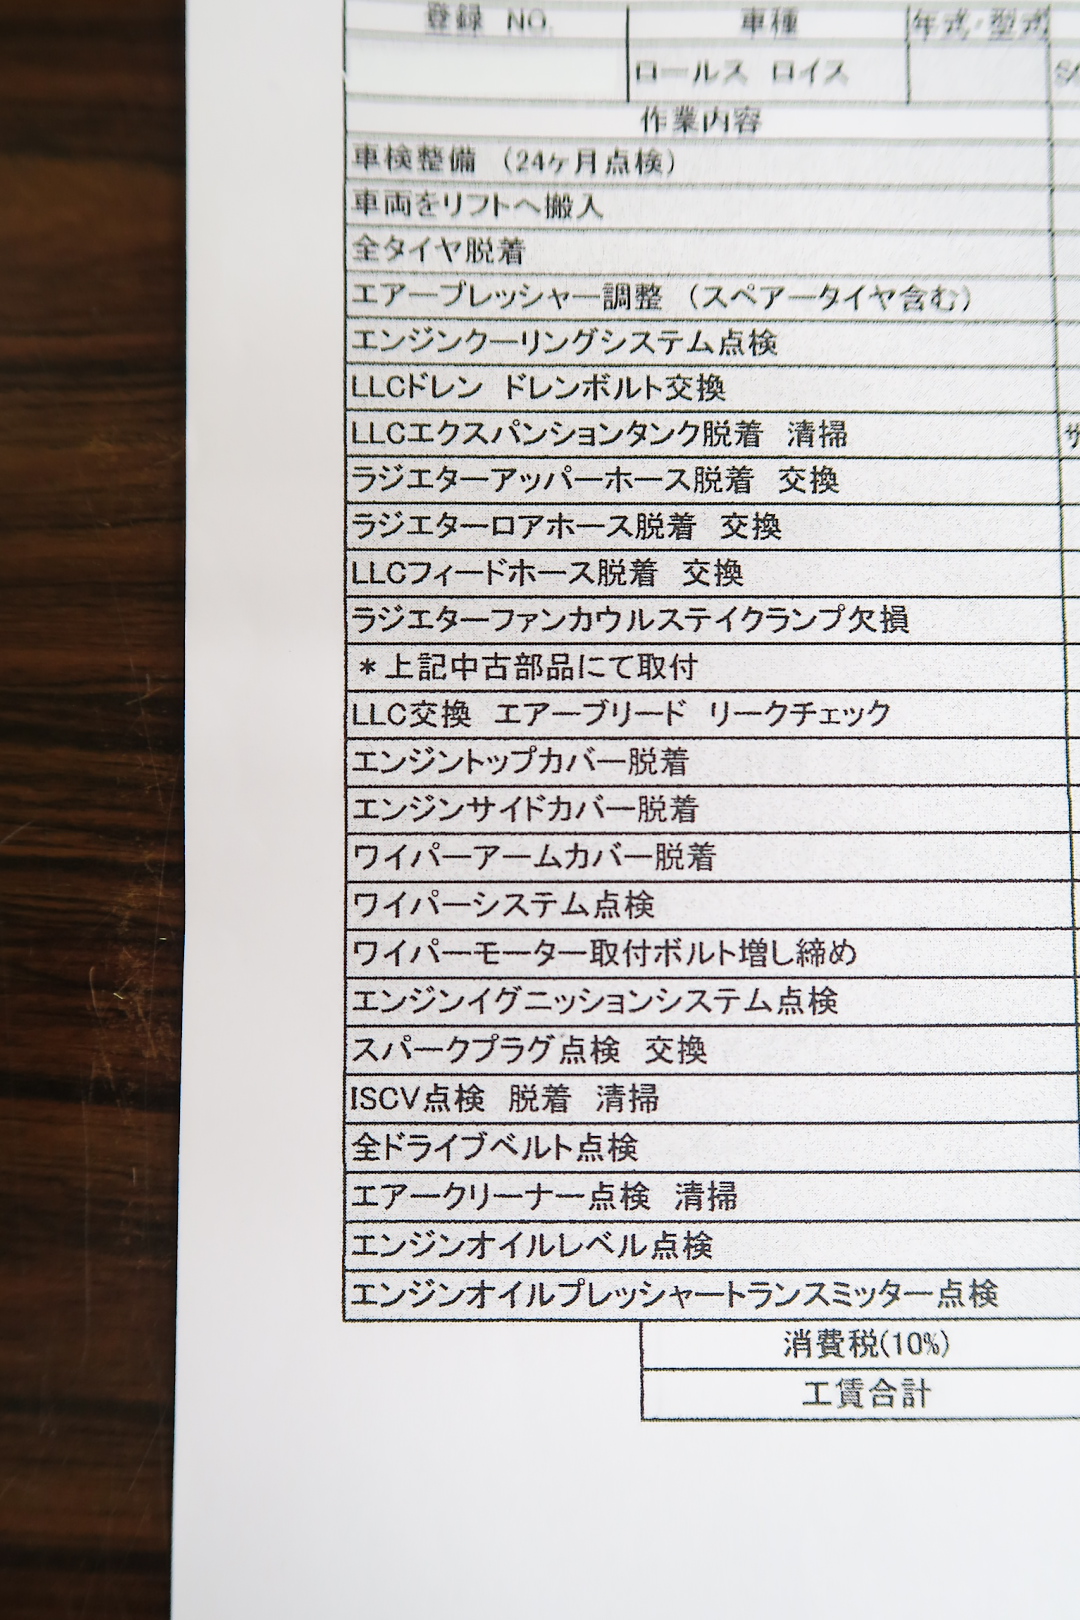 登録 NO. 車種 年式・型式
ロールス ロイス
作業内容
車検整備 (24ヶ月点検)
車両をリフトへ搬入
全タイヤ脱着
エアープレッシャー調整 (スペアータイヤ含む)
エンジンクーリングシステム点検
LLCドレン ドレンボルト交換
LLCエクスパンションタンク脱着 清掃
ラジエターアッパーホース脱着 交換
ラジエターロアホース脱着 交換
LLCフィードホース脱着 交換
ラジエターファンカウルステイクランプ欠損
*上記中古部品にて取付
LLC交換 エアーブリード リークチェック
エンジントップカバー脱着
エンジンサイドカバー脱着
ワイパーアームカバー脱着
ワイパーシステム点検
ワイパーモーター取付ボルト増し締め
エンジンイグニッションシステム点検
スパークプラグ点検 交換
ISCV点検 脱着 清掃
全ドライブベルト点検
エアークリーナー点検 清掃
エンジンオイルレベル点検
エンジンオイルプレッシャートランスミッター点検
消費税(10%)
工賃合計